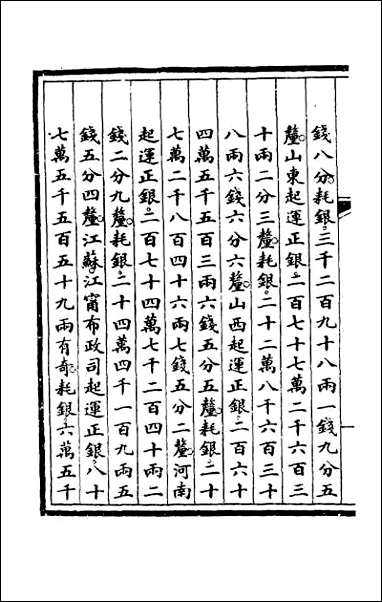 錢八分耗銀三千二百九十八兩一錢九分五
釐山東起運正銀二百七十七萬二千六百三
十兩二分三釐耗銀二十二萬八千六百三十
八兩六錢六分六釐山西起運正銀二百六十
四萬五千五百三兩六錢五分五釐耗銀二十
七萬二千八百四十六兩七錢五分二釐河南
起運正銀二百七十四萬七千二百四十兩二
錢二分九釐耗銀二十四萬四千一百九兩五
錢五分四釐江蘇江甯布政司起運正銀八十
七萬五千五百五十九兩有奇耗銀六萬五千